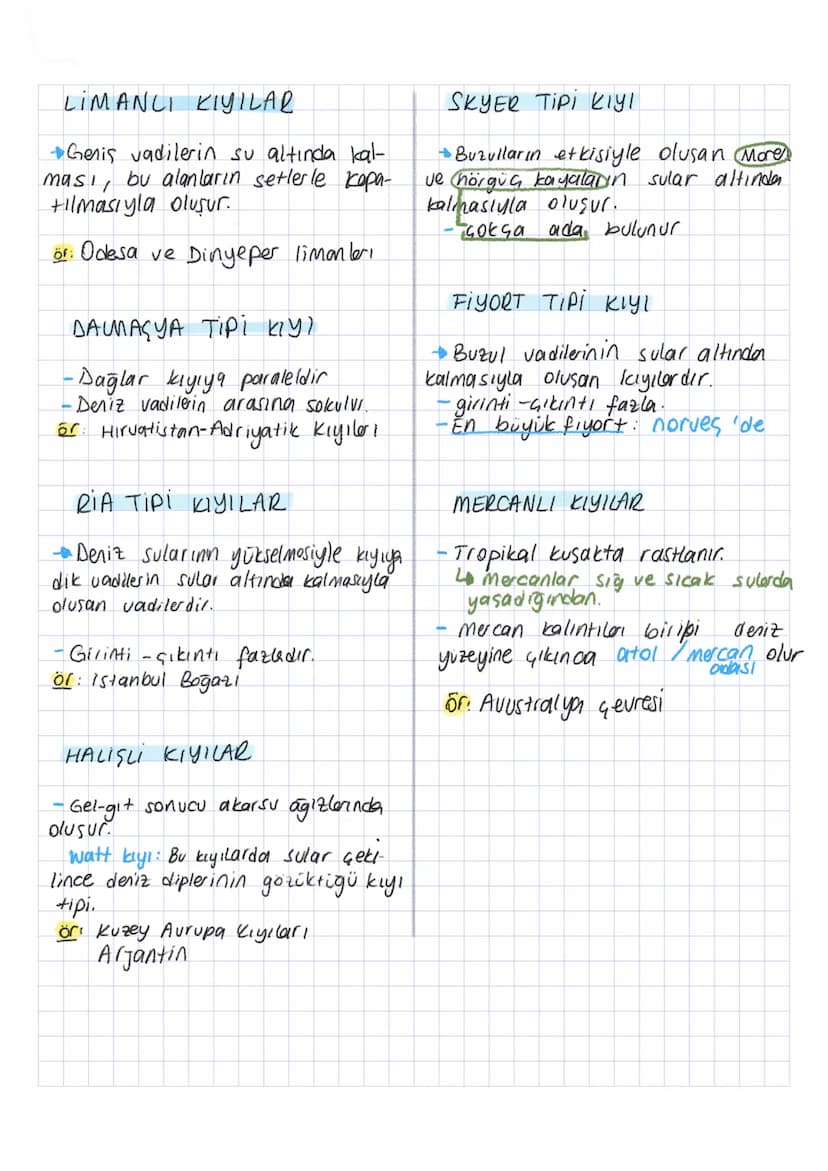 LİMANLI KIYILAR
→Geniş vadilerin su altında kal-
ması, bu alanların setlerle kapa-
tılmasıyla oluşur.
ör: Odesa ve Dinyeper limanları
DALMAÇYA TİPİ KIYI
- Dağlar kıyıya paraleldir
- Deniz vadilerin arasına sokulur.
ör: Hırvatistan-Adriyatik Kıyıları
RİA TİPİ KIYILAR
→Deniz sularının yükselmesiyle kıyıya
dik vadilerin sular altında kalmasıyla
oluşan vadilerdir.
- Girinti - çıkıntı fazladır.
ör: İstanbul Boğazı
HALİÇLİ KIYILAR
- Gel-git sonucu akarsu ağızlarında
oluşur.
Watt kıyı: Bu kıyılarda sular çeki-
lince deniz diplerinin gözüktüğü kıyı
tipi.
ör: Kuzey Avrupa Kıyıları
Arjantin
SKYER TİPİ KIYI
→Buzulların etkisiyle oluşan Moren
ve hörgüç kayaların sular altında
kalmasıyla oluşur.
- çokça ada bulunur
FİYORT TİPİ KIYI
→ Buzul vadilerinin sular altında
kalmasıyla oluşan kıyılardır.
- girinti-çıkıntı fazla.
- En büyük fiyort: norveç'de
MERCANLI KIYILAR
- Tropikal kuşakta rastlanır.
↳ mercanlar sığ ve sıcak sularda
yaşadığından.
- Mercan kalıntıları biripi deniz
yüzeyine çıkınca atol / mercan adası olur
ör: Avustralya çevresi